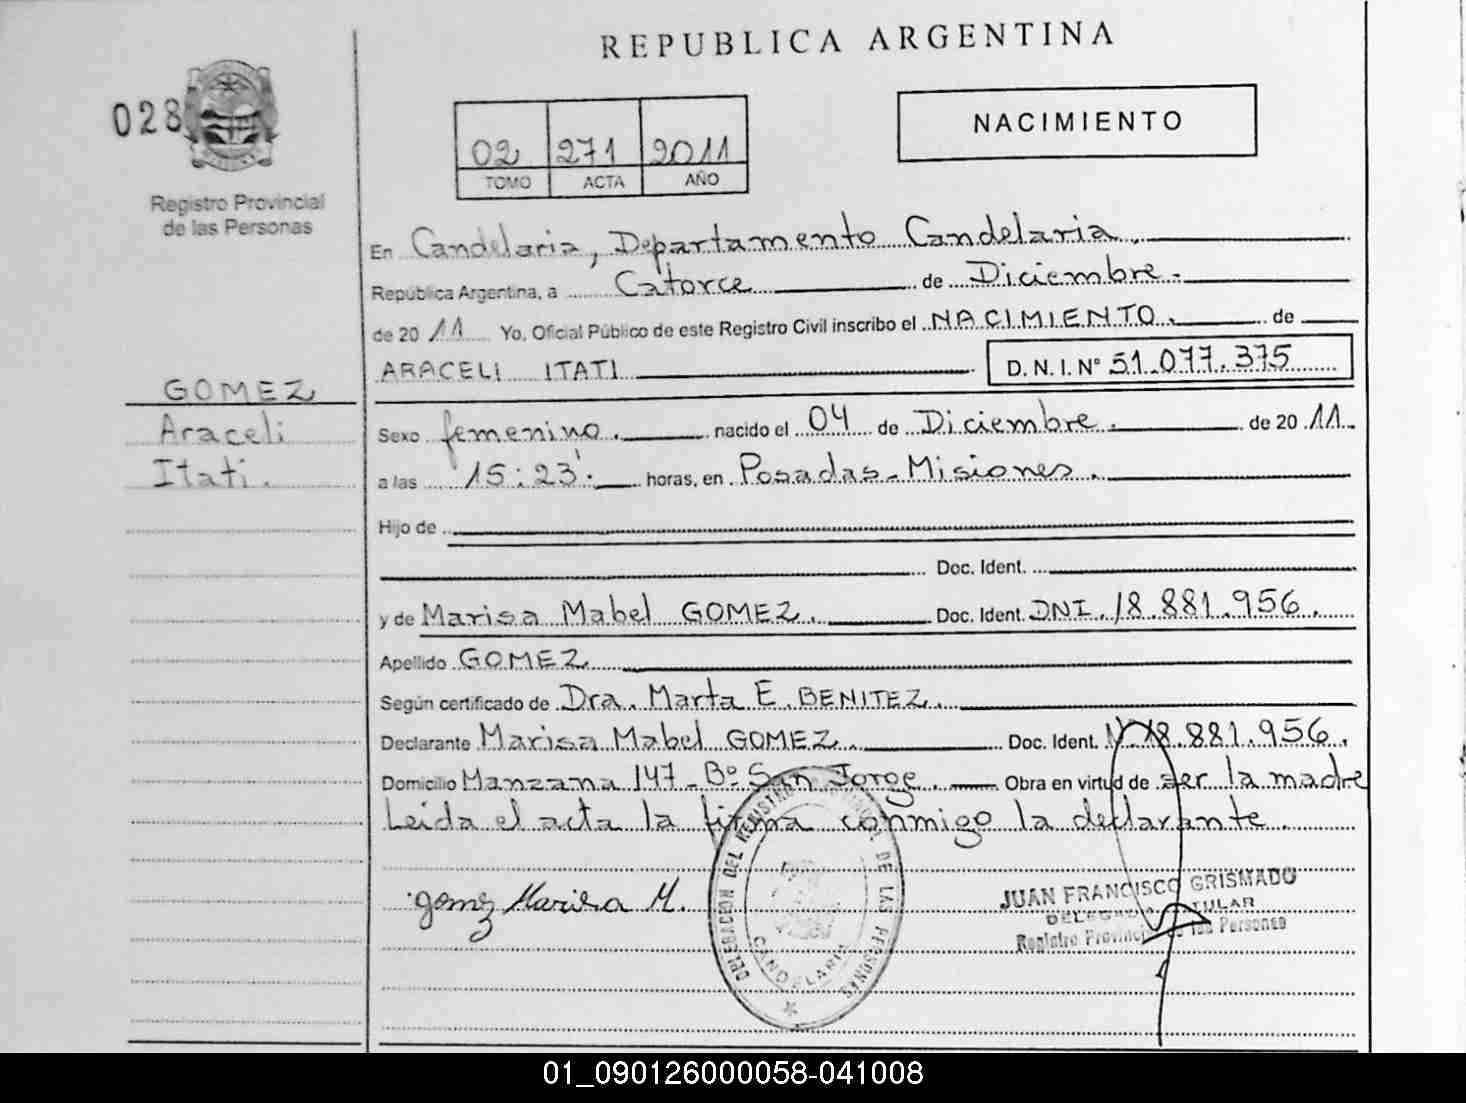 REPUBLICA ARGENTINA
028
02 271 2011
TOMO ACTA AÑO
NACIMIENTO
Registro Provincial
de las Personas
En Candelaria, Departamento Candelaria.
República Argentina, a Catorce de Diciembre.
de 2011 Yo, Oficial Público de este Registro Civil inscribo el NACIMIENTO. de
ARACELI ITATI D.N.I.Nº 51.077.375
GOMEZ
Araceli
Itati.
Sexo femenino. nacido el 04 de Diciembre. de 2011.
a las 15:23'. horas, en Posadas-Misiones.
Hijo de
Doc. Ident.
y de Marisa Mabel GOMEZ. Doc. Ident. DNI. 18.881.956.
Apellido GOMEZ
Según certificado de Dra. Marta E. BENITEZ.
Declarante Marisa Mabel GOMEZ. Doc. Ident. 18.881.956.
Domicilio Manzana 147-Bº San Jorge. Obra en virtud de ser la madre
Leida el acta la firma conmigo la declarante.
Gomez Marisa M.
DELEGACION DEL REGISTRO PROVINCIAL DE LAS PERSONAS
CANDELARIA
JUAN FRANCISCO GRISMADO
DELEGADO TITULAR
Registro Provincial de las Personas
01_090126000058-041008